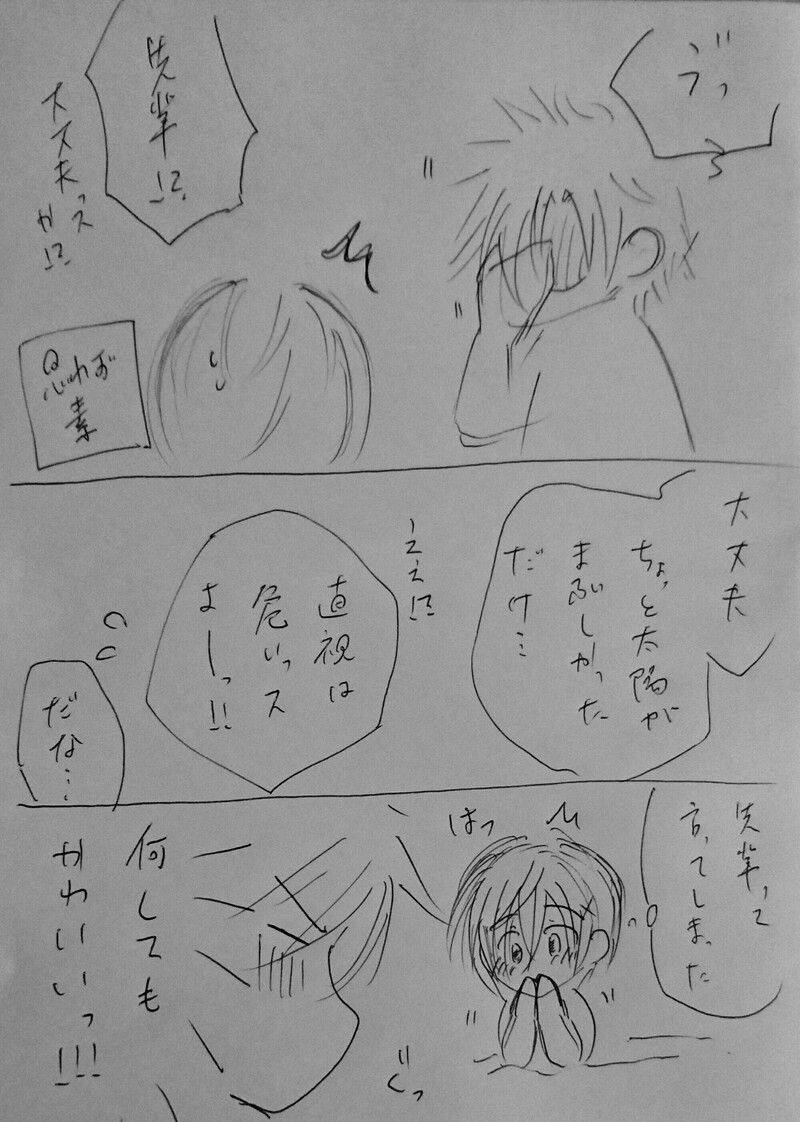 ヴっ
先輩!?
大丈夫っス
か!?
思わず
素
大丈夫
ちょっと太陽が
まぶしかった
だけ…
ええ!?
直視は
危いっス
よーっ!!
だな…
先輩って
言ってしまった
はっ
ぐっ
何しても
かわいいっ!!!